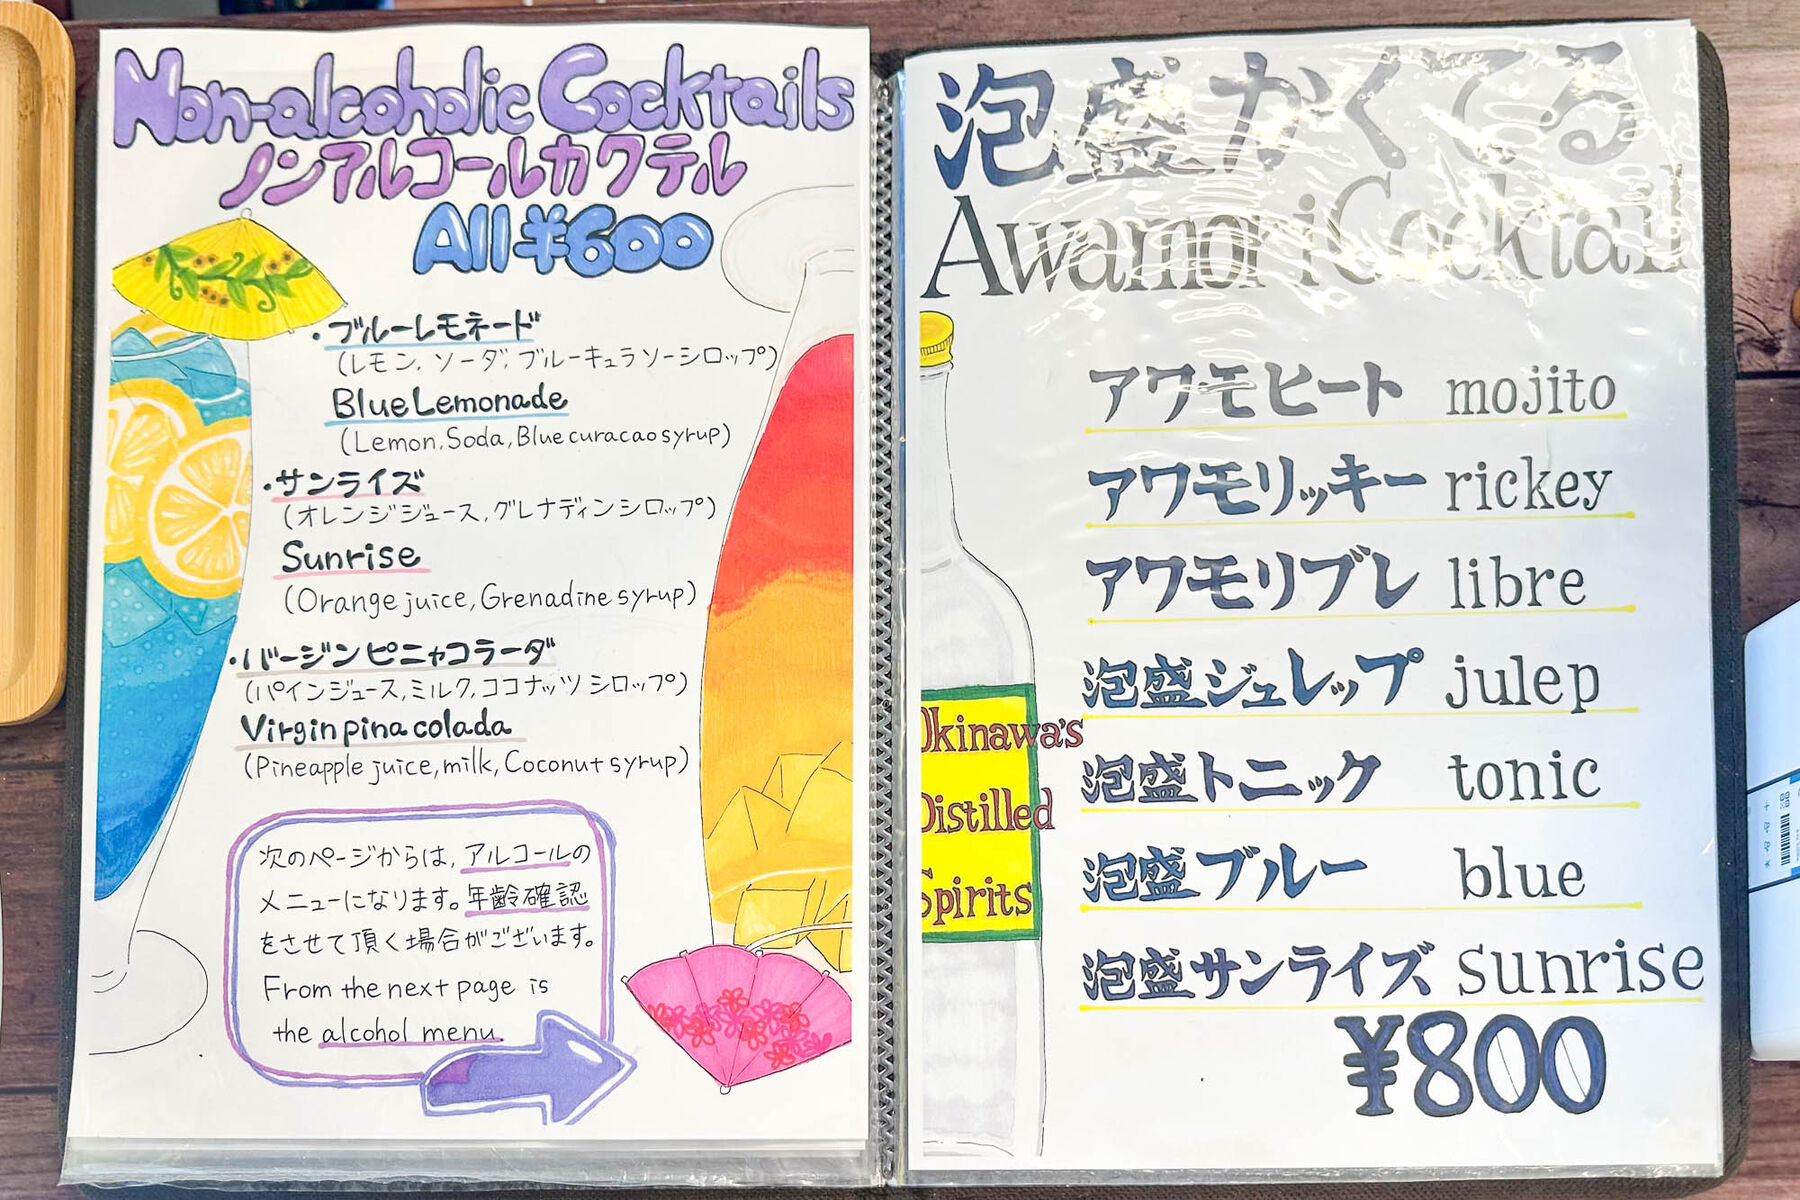 Non-alcoholic Cocktails
ノンアルコールカクテル
All ¥600
・ブルーレモネード
(レモン, ソーダ, ブルーキュラソーシロップ)
Blue Lemonade
(Lemon, Soda, Blue curacao syrup)
・サンライズ
(オレンジジュース, グレナディンシロップ)
Sunrise
(Orange juice, Grenadine syrup)
・バージンピニャコラーダ
(パインジュース, ミルク, ココナッツシロップ)
Virgin pina colada
(Pineapple juice, milk, Coconut syrup)
次のページからは, アルコールの
メニューになります。年齢確認
をさせて頂く場合がございます。
From the next page is
the alcohol menu.
泡盛かくてる
Awamori Cocktail
アワモヒート mojito
アワモリッキー rickey
アワモリブレ libre
泡盛ジュレップ julep
泡盛トニック tonic
泡盛ブルー blue
泡盛サンライズ sunrise
¥800
Okinawa's
Distilled
Spirits